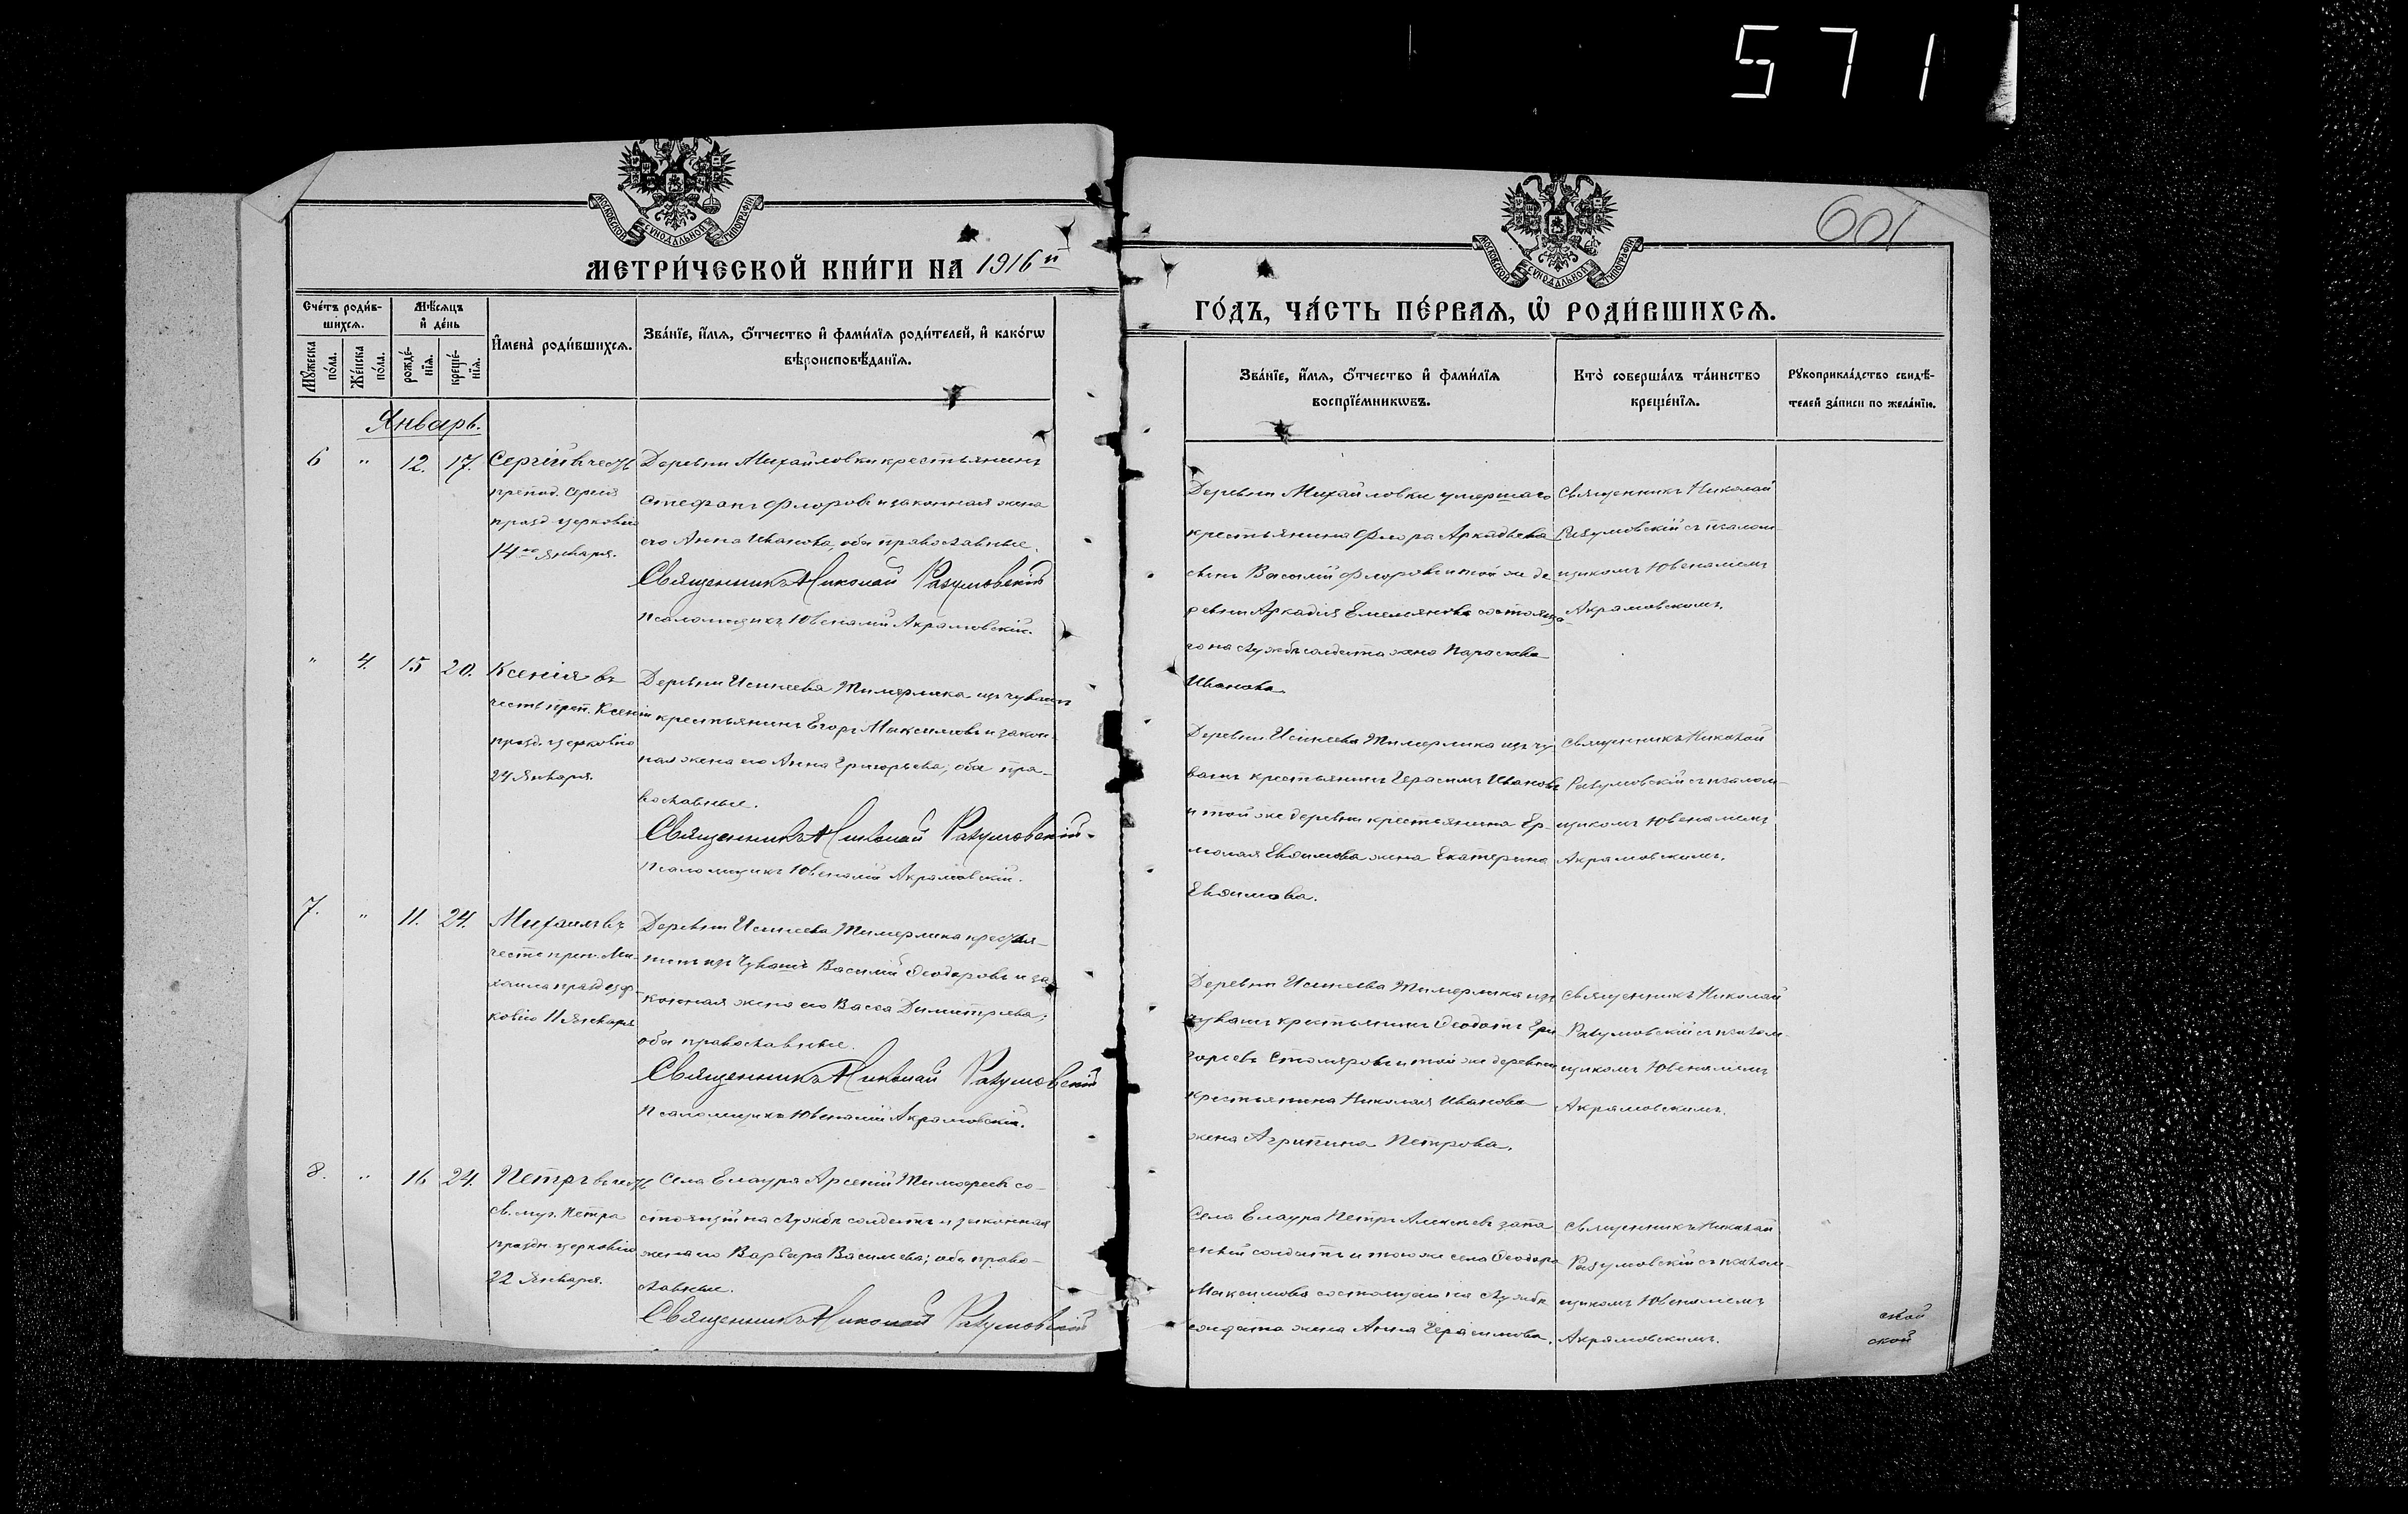 571
601
МОСКОВСКОЙ СѴНОДАЛЬНОЙ ТИПОГРАФІИ
МЕТРИ́ЧЕСКОЙ КНИ́ГИ НА 1916й
Сче́тъ роди́в-
шихсѧ.
Мѣ́сѧцъ
и҆ де́нь
Мꙋ́жеска
по́ла.
Же́нска
по́ла.
рожде́-
нїѧ.
креще́-
нїѧ.
И҆мена̀ роди́вшихсѧ.
Зва́нїе, и҆́мѧ, ѻ҆́тчество и҆ фами́лїѧ роди́телей, и҆ како́гѡ
вѣроисповѣ́данїѧ.
Январь.
6 " 12. 17.
Сергій въ честь
препод. Сергія
празд. церковію
14го января.
Деревни Михайловки крестьянинъ
Стефанъ Флоровъ и законная жена
его Анна Иванова, оба православные.
Священникъ Николай Разумовскій
Псаломщикъ Ювеналій Акрамовскій.
" 4. 15 20.
Ксенія въ
честь преп. Ксеніи
празд. церковію
24 Января.
Деревни Исинеева Тимерлика изъ чувашъ
крестьянинъ Егоръ Максимовъ и закон-
ная жена его Анна Григорьева; оба пра-
вославные.
Священникъ Николай Разумовскій.
Псаломщикъ Ювеналій Акрамовскій.
7. " 11. 24.
Михаилъ въ
честь преп. Ми-
хаила празд. цер-
ковію 11 Января
Деревни Исинеева Тимерлика крестья-
нинъ изъ Чувашъ Василій Ѳеодоровъ и за-
конная жена его Васса Димитріева;
оба православные.
Священникъ Николай Разумовскій
Псаломщикъ Ювеналій Акрамовскій.
8. " 16 24.
Петръ въ честь
св. муч. Петра
праздн. церковію
22 Января.
Села Елаура Арсеній Тимофеевъ со-
стоящій на службѣ солдатъ и законная
жена его Варвара Васильева; оба право-
славные.
Священникъ Николай Разумовскій
МОСКОВСКОЙ СѴНОДАЛЬНОЙ ТИПОГРАФІИ
ГО́ДЪ, ЧА́СТЬ ПЕ́РВАѦ, Ѡ҆ РОДИ́ВШИХСѦ.
Зва́нїе, и҆́мѧ, ѻ҆́тчество и҆ фами́лїѧ
воспрїе́мникѡвъ.
Кто̀ соверша́лъ та́инство
креще́нїѧ.
Рꙋкоприкла́дство свидѣ́-
телей за́писи по жела́нїю.
Деревни Михайловки умершаго
крестьянина Флора Аркадьева
сынъ Василій Флоровъ и той же де
ревни Аркадія Емельянова состояща-
го на службѣ солдата жена Параскева
Иванова.
Священникъ Николай
Разумовскій съ псалом-
щикомъ Ювеналіемъ
Акрамовскимъ.
Деревни Исинеева Тимерлика изъ чу
вашъ крестьянинъ Герасимъ Ивановъ
и той же деревни крестьянина Ер-
молая Евѳимова жена Екатерина
Евѳимова.
Священникъ Николай
Разумовскій съ псалом-
щикомъ Ювеналіемъ
Акрамовскимъ.
Деревни Исинеева Тимерлика изъ
чувашъ крестьянинъ Ѳеодотъ Гри
горьевъ Столяровъ и той же деревни
крестьянина Николая Иванова
жена Агрипина Петрова.
Священникъ Николай
Разумовскій съ псалом-
щикомъ Ювеналіемъ
Акрамовскимъ.
Села Елаура Петръ Алексѣевъ запа
сный солдатъ и того же села Ѳеодора
Максимова состоящаго на службѣ
солдата жена Анна Герасимова.
Священникъ Николай
Разумовскій съ псалом-
щикомъ Ювеналіемъ
Акрамовскимъ.
ской
ской